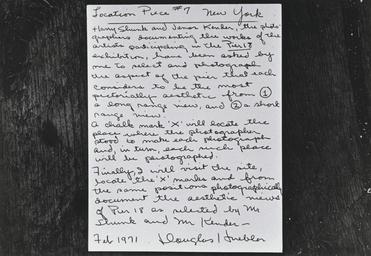 Location Piece #7 New York
Harry Shunk and Janos Kender, the photo-
graphers documenting the works of the
artists participating in the Pier 18
exhibition, have been asked by
me to select and photograph
the aspect of the pier that each
considers to be the most
pictorially aesthetic from ①
a long range view, and ② a short
range view.
A chalk mark 'X' will locate the
place where the photographer
stood to make each photograph
and, in turn, each such place
will be photographed.
Finally, I will visit the site,
locate the 'X' marks and from
the same positions photographically
document the aesthetic views
of Pier 18 as selected by Mr
Shunk and Mr Kender—
Feb 1971 Douglas Huebler